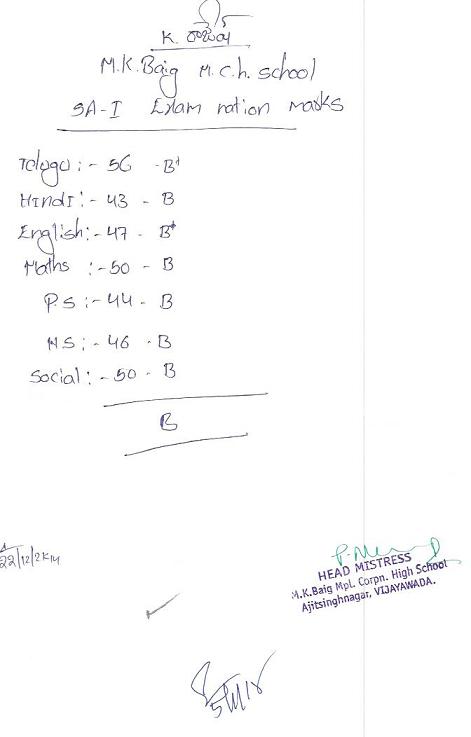 K.
M.K.Baig M.C.h. school
SA-I Exam nation marks
Telugu :- 56 - B+
Hindi :- 43 - B
English:- 47 - B+
Maths :- 50 - B
P.S :- 44 - B
N.S :- 46 - B
Social :- 50 - B
B
22/12/2k14
HEAD MISTRESS
M.K.Baig Mpl. Corpn. High School
Ajitsinghnagar, VIJAYAWADA.